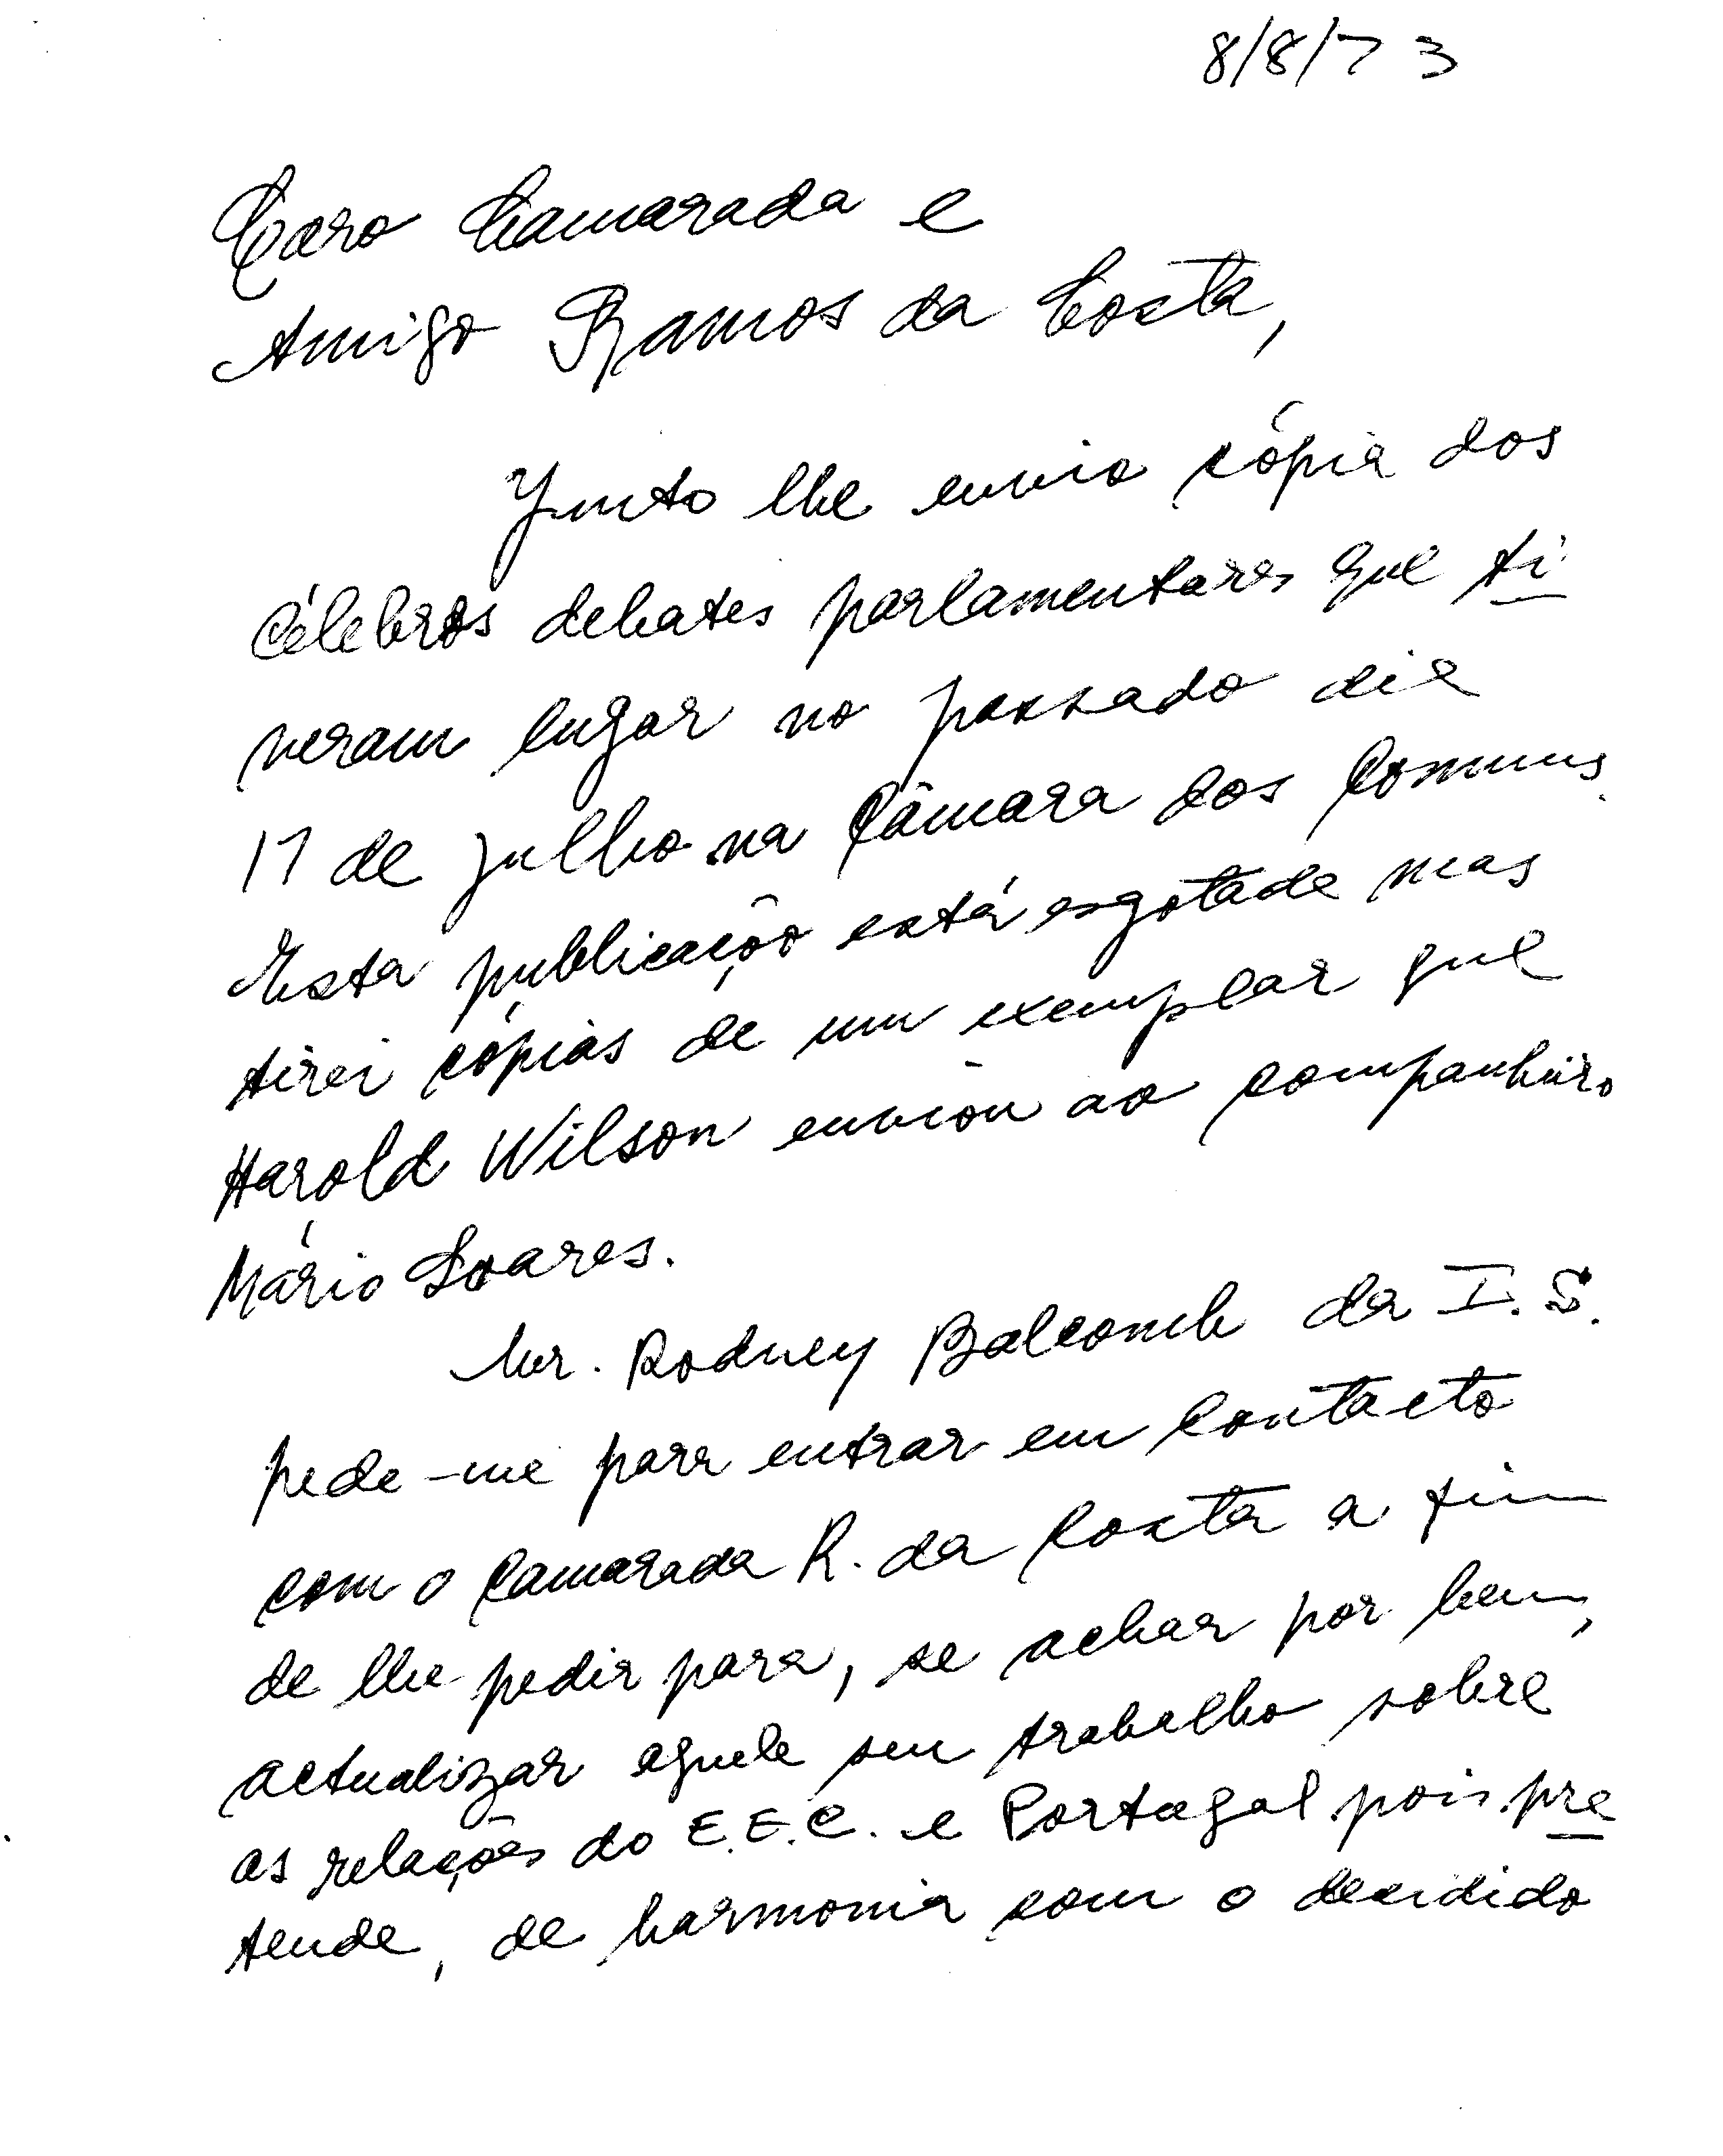 8/8/73
Caro Camarada e
Amigo Ramos da Costa,
Junto lhe envio cópia dos
célebres debates parlamentares que ti
veram lugar no passado dia
17 de Julho na Câmara dos Comuns.
Esta publicação está esgotada mas
tirei cópias de um exemplar que
Harold Wilson enviou ao companheiro
Mário Soares.
Mr. Rodney Balcomb da I. S.
pede-me para entrar em contacto
com o Camarada R. da Costa a fim
de lhe pedir para, se achar por bem,
actualizar aquele seu trabalho sobre
as relações do E.E.C. e Portugal pois pre
tende, de harmonia com o decidido